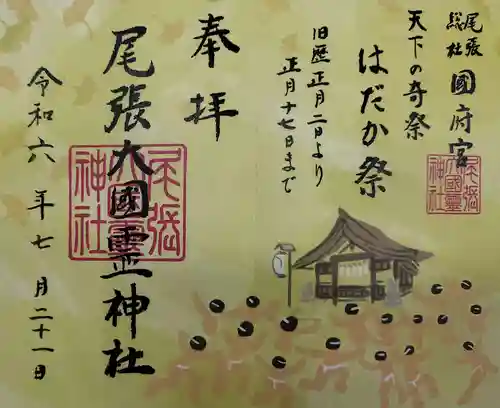 尾張
総社
國府宮
天下の奇祭
はだか祭
旧暦正月二日より
正月十七日まで
奉拝
尾張大國霊神社
令和六年七月二十一日
尾張
大國霊
神社
尾張
大國霊
神社